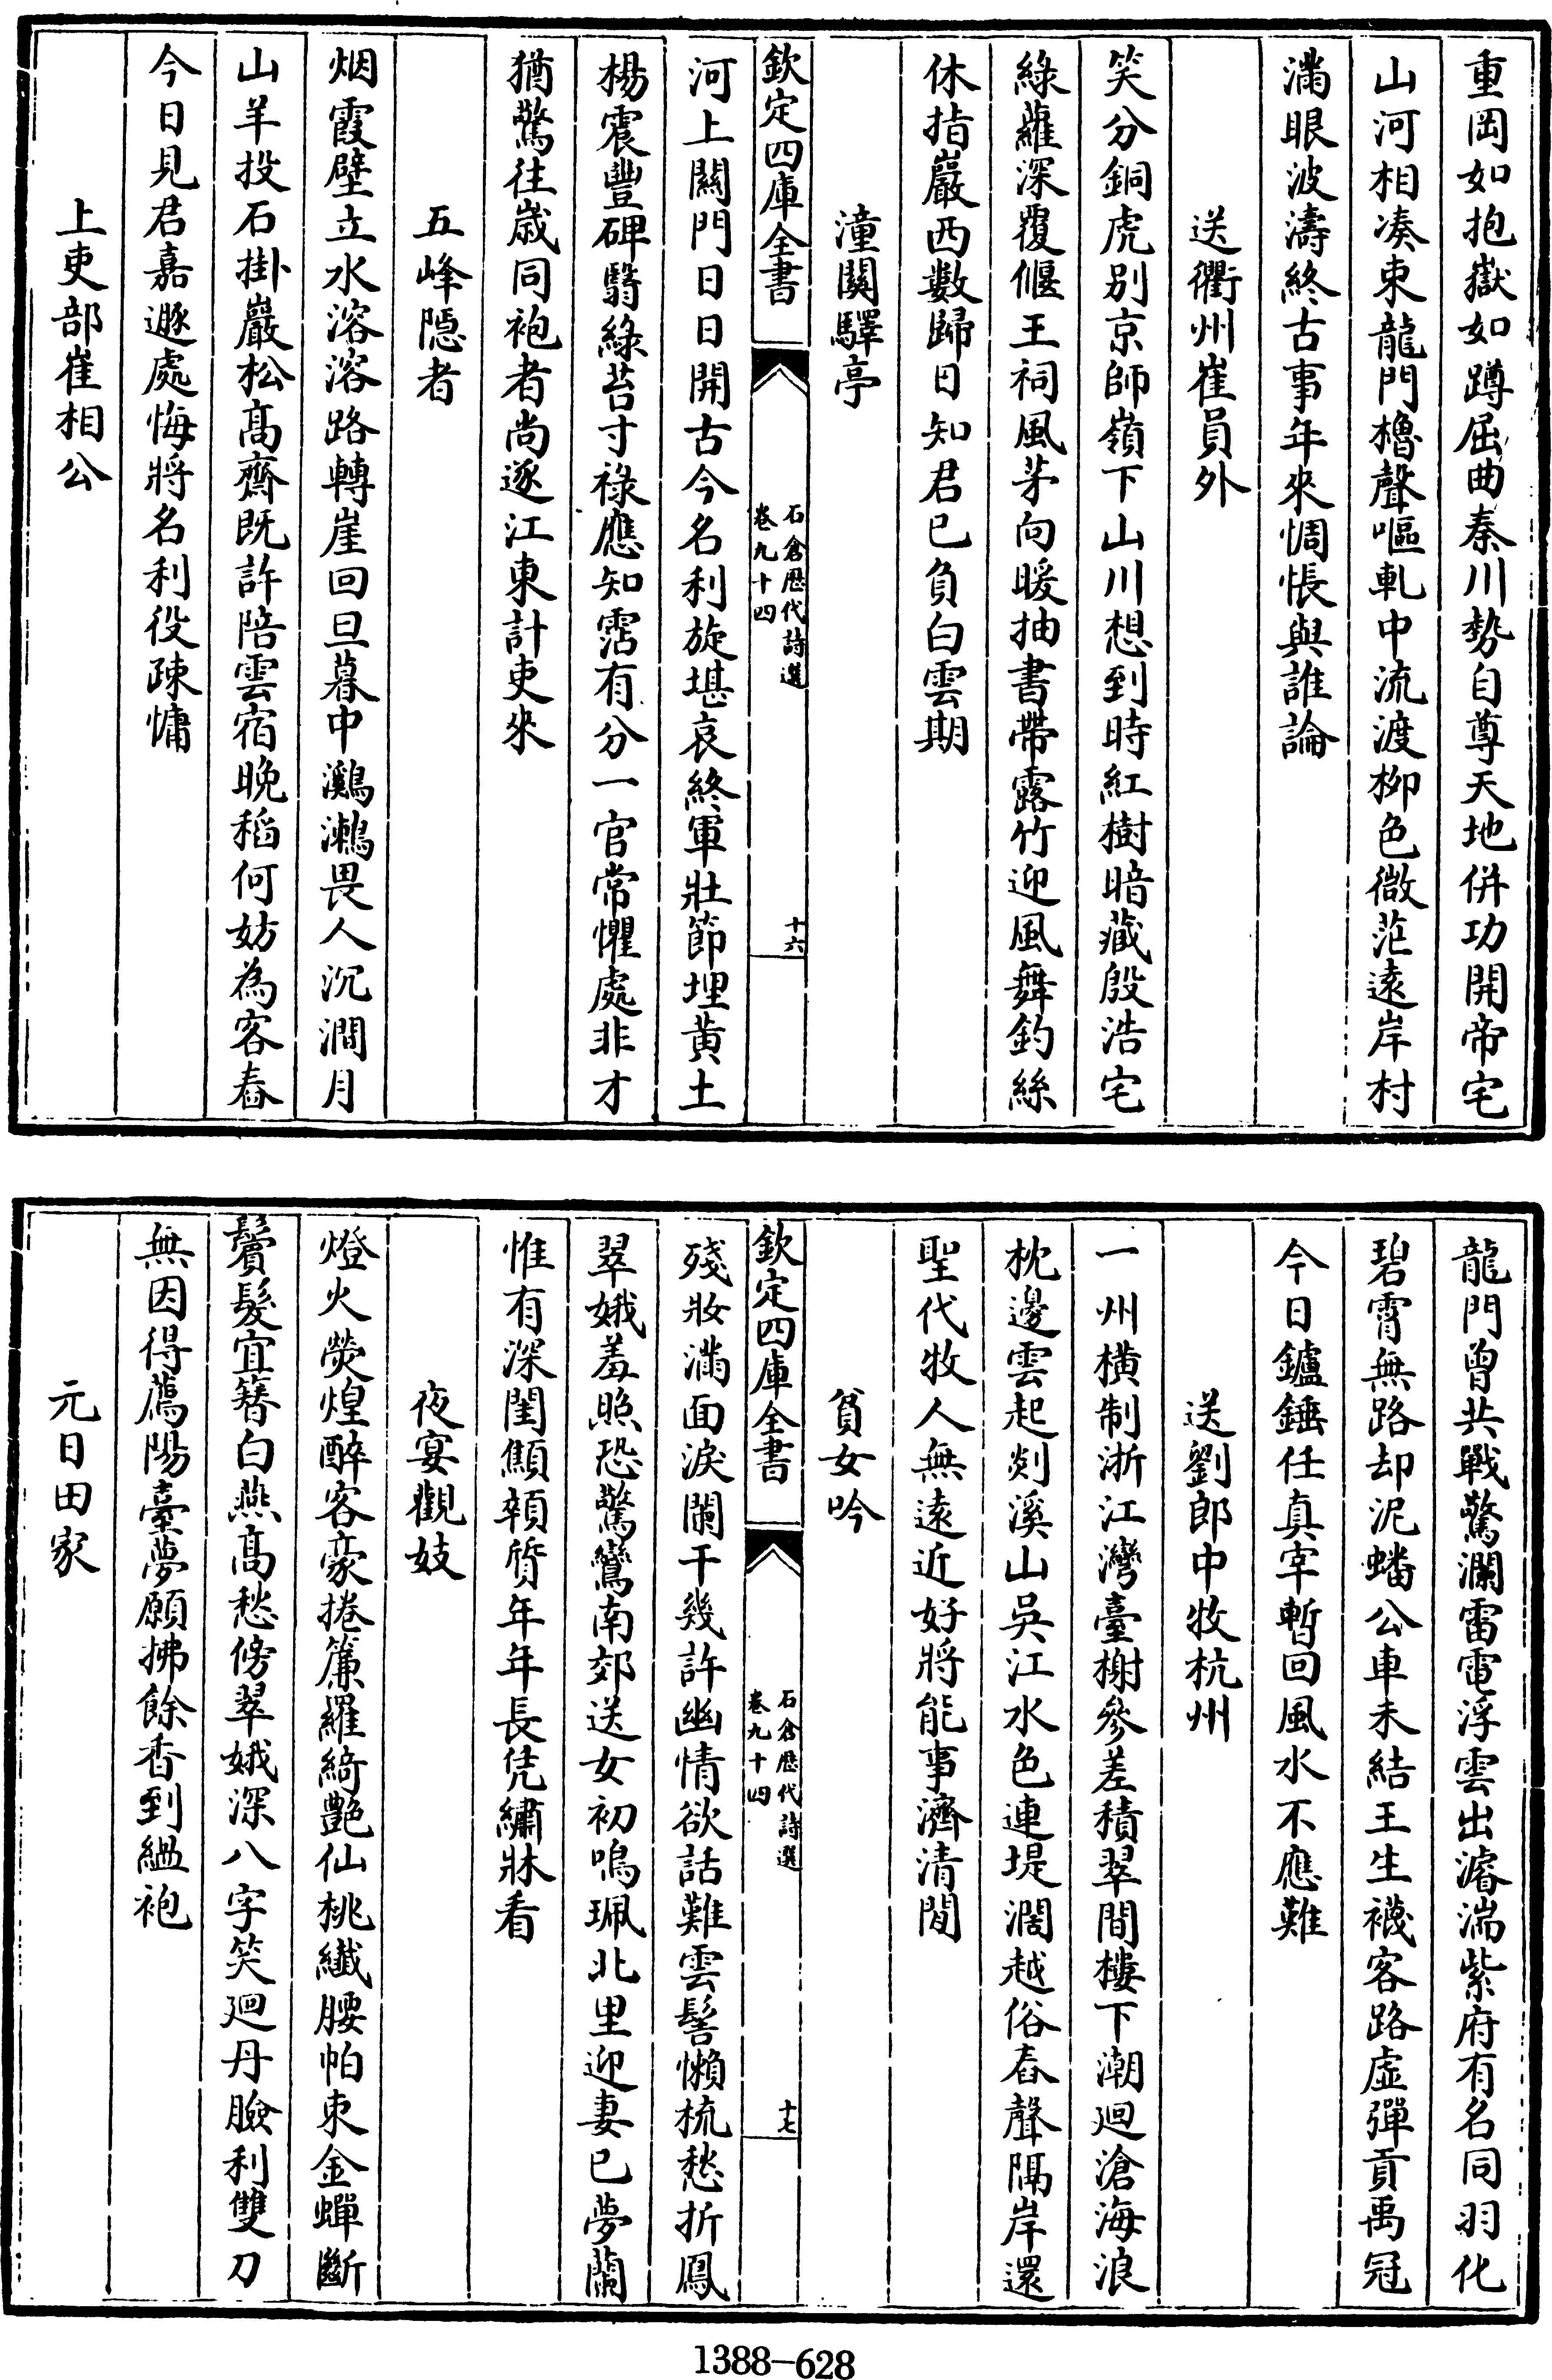 重岡如抱嶽如蹲屈曲秦川勢自尊天地併功開帝宅
山河相湊束龍門櫓聲嘔軋中流渡柳色微茫遠岸村
滿眼波濤終古事年來惆悵與誰論
送衢州崔員外
笑分銅虎别京師嶺下山川想到時紅樹暗藏殷浩宅
綠蘿深覆偃王祠風茅向暖抽書帶露竹迎風舞釣絲
休指巖西數歸日知君已負白雲期
潼關驛亭
欽定四庫全書
石倉歷代詩選
卷九十四
十六
河上關門日日開古今名利旋堪哀終軍壯節埋黃土
楊震豐碑翳綠苔寸祿應知霑有分一官常懼處非才
猶驚往歲同袍者尚逐江東計吏來
五峰隱者
烟霞壁立水溶溶路轉崖回旦暮中鸂鷘畏人沉澗月
山羊投石掛巖松髙齋既許陪雲宿晚稻何妨為客舂
今日見君嘉遯處悔將名利役疎慵
上吏部崔相公
龍門曾共戰驚瀾雷電浮雲出濬湍紫府有名同羽化
碧霄無路却泥蟠公車未結王生襪客路虛彈貢禹冠
今日鑪錘任真宰暫回風水不應難
送劉郎中牧杭州
一州橫制浙江灣臺榭參差積翠間樓下潮廻滄海浪
枕邊雲起剡溪山吳江水色連堤濶越俗舂聲隔岸還
聖代牧人無遠近好將能事濟清閒
貧女吟
欽定四庫全書
石倉歷代詩選
卷九十四
十七
殘妝滿面淚闌干幾許幽情欲話難雲髻懶梳愁折鳳
翠娥羞照恐驚鸞南郊送女初鳴珮北里迎妻已夢蘭
惟有深閨顦顇質年年長凭繡牀看
夜宴觀妓
燈火熒煌醉客豪捲簾羅綺艷仙桃纖腰帕束金蟬斷
鬢髮宜簪白燕髙愁傍翠娥深八字笑廻丹臉利雙刀
無因得薦陽臺夢願拂餘香到縕袍
元日田家
1388-628